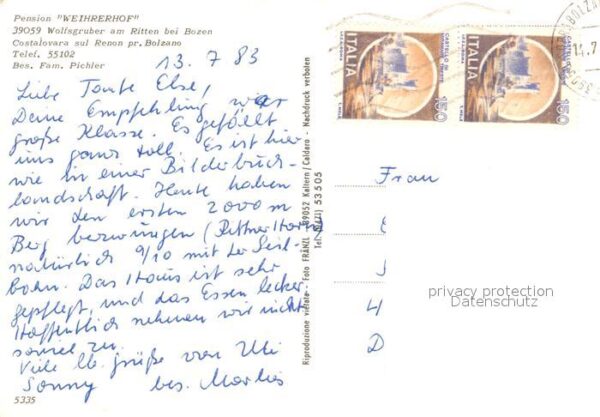 Pension "WEIHRERHOF"
39059 Wolfsgruber am Ritten bei Bozen
Costalovara sul Renon pr. Bolzano
Telef. 55102
Bes. Fam. Pichler
13. 7 83
Liebe Tante Else,
Deine Empfehlung war
große Klasse. Es gefällt
uns ganz toll. Es ist hier
wie in einer Bilderbuch-
landschaft. Heute haben
wir den ersten 2000 m
Berg bezwungen (Rittner Horn)
natürlich 9/10 mit der Seil-
bahn. Das Haus ist sehr
gepflegt, und das Essen lecker.
Hoffentlich nehmen wir nicht
soviel zu.
Viele lb. Grüße von Uli
Sonny bes. Marlies
5335
Riproduzione vietata - Foto FRÄNZL, 39052 Kaltern/Caldaro - Nachdruck verboten
Tel. (0471) 53505
ITALIA
150
CASTELLO
ITALIA
150
CASTELLO
BOLZANO
14.7
Frau
H
D
privacy protection
Datenschutz